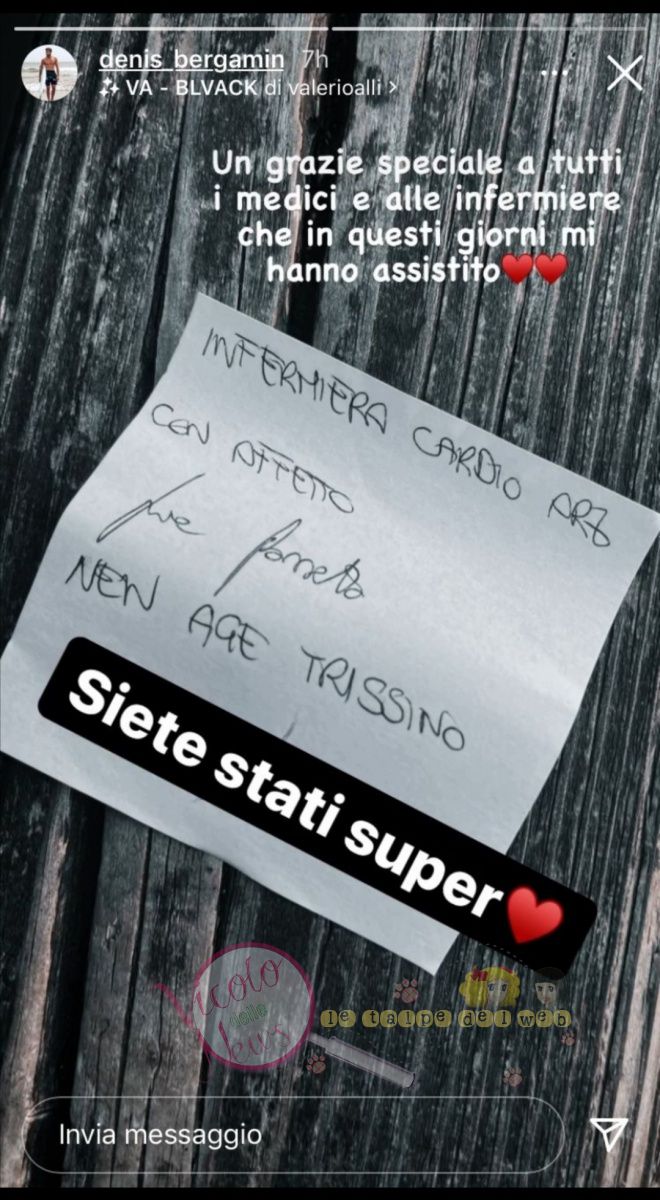 denis_bergamin 7h
VA - BLVACK di valerioalli >
Un grazie speciale a tutti
i medici e alle infermiere
che in questi giorni mi
hanno assistito♥️♥️
INFERMIERA CARDIO ARZ
CON AFFETTO
NEW AGE TRISSINO
Siete stati super♥️
Vicolo
delle
News
le talpe del web
Invia messaggio